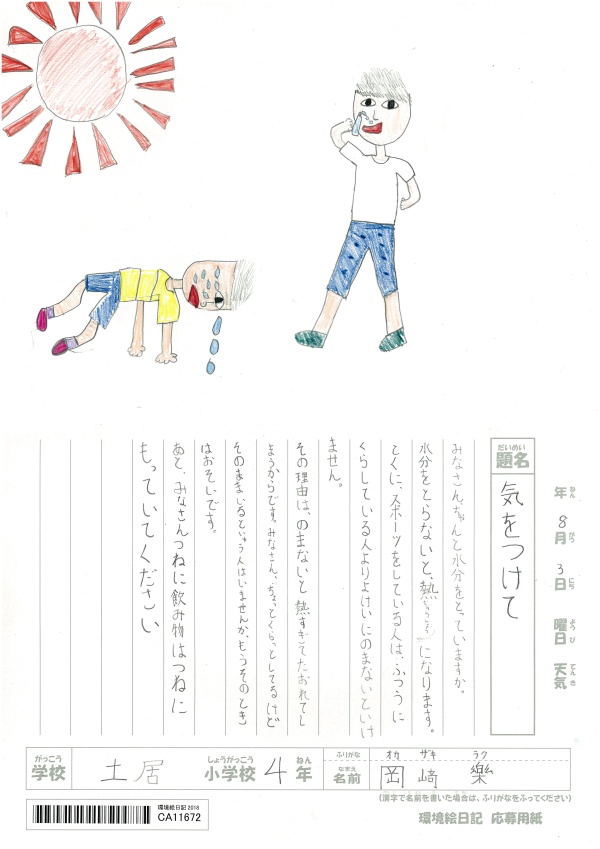 年 8月 3日 曜日 天気
ねん がつ にち ようび てんき
だいめい
題名
気をつけて
みなさんちゃんと水分をとっていますか。
水分をとらないと、熱ちゅうしょうになります。
とくに、スポーツをしている人は、ふつうに
くらしている人よりよけいにのまないといけ
ません。
その理由は、のまないと熱すぎてたおれてし
まうからです。みなさん、ちょっとくらっとしてるけど
そのままいるという人はいませんか、もうそのとき
はおそいです。
あと、みなさんつねに飲み物はつねに
もっていてください
がっこう しょうがっこう ねん ふりがな オカ ザキ ラク
学校 土居 小学校 4年 なまえ 名前 岡﨑 樂
(漢字で名前を書いた場合は、ふりがなをふってください)
環境絵日記 2018
CA11672
環境絵日記 応募用紙